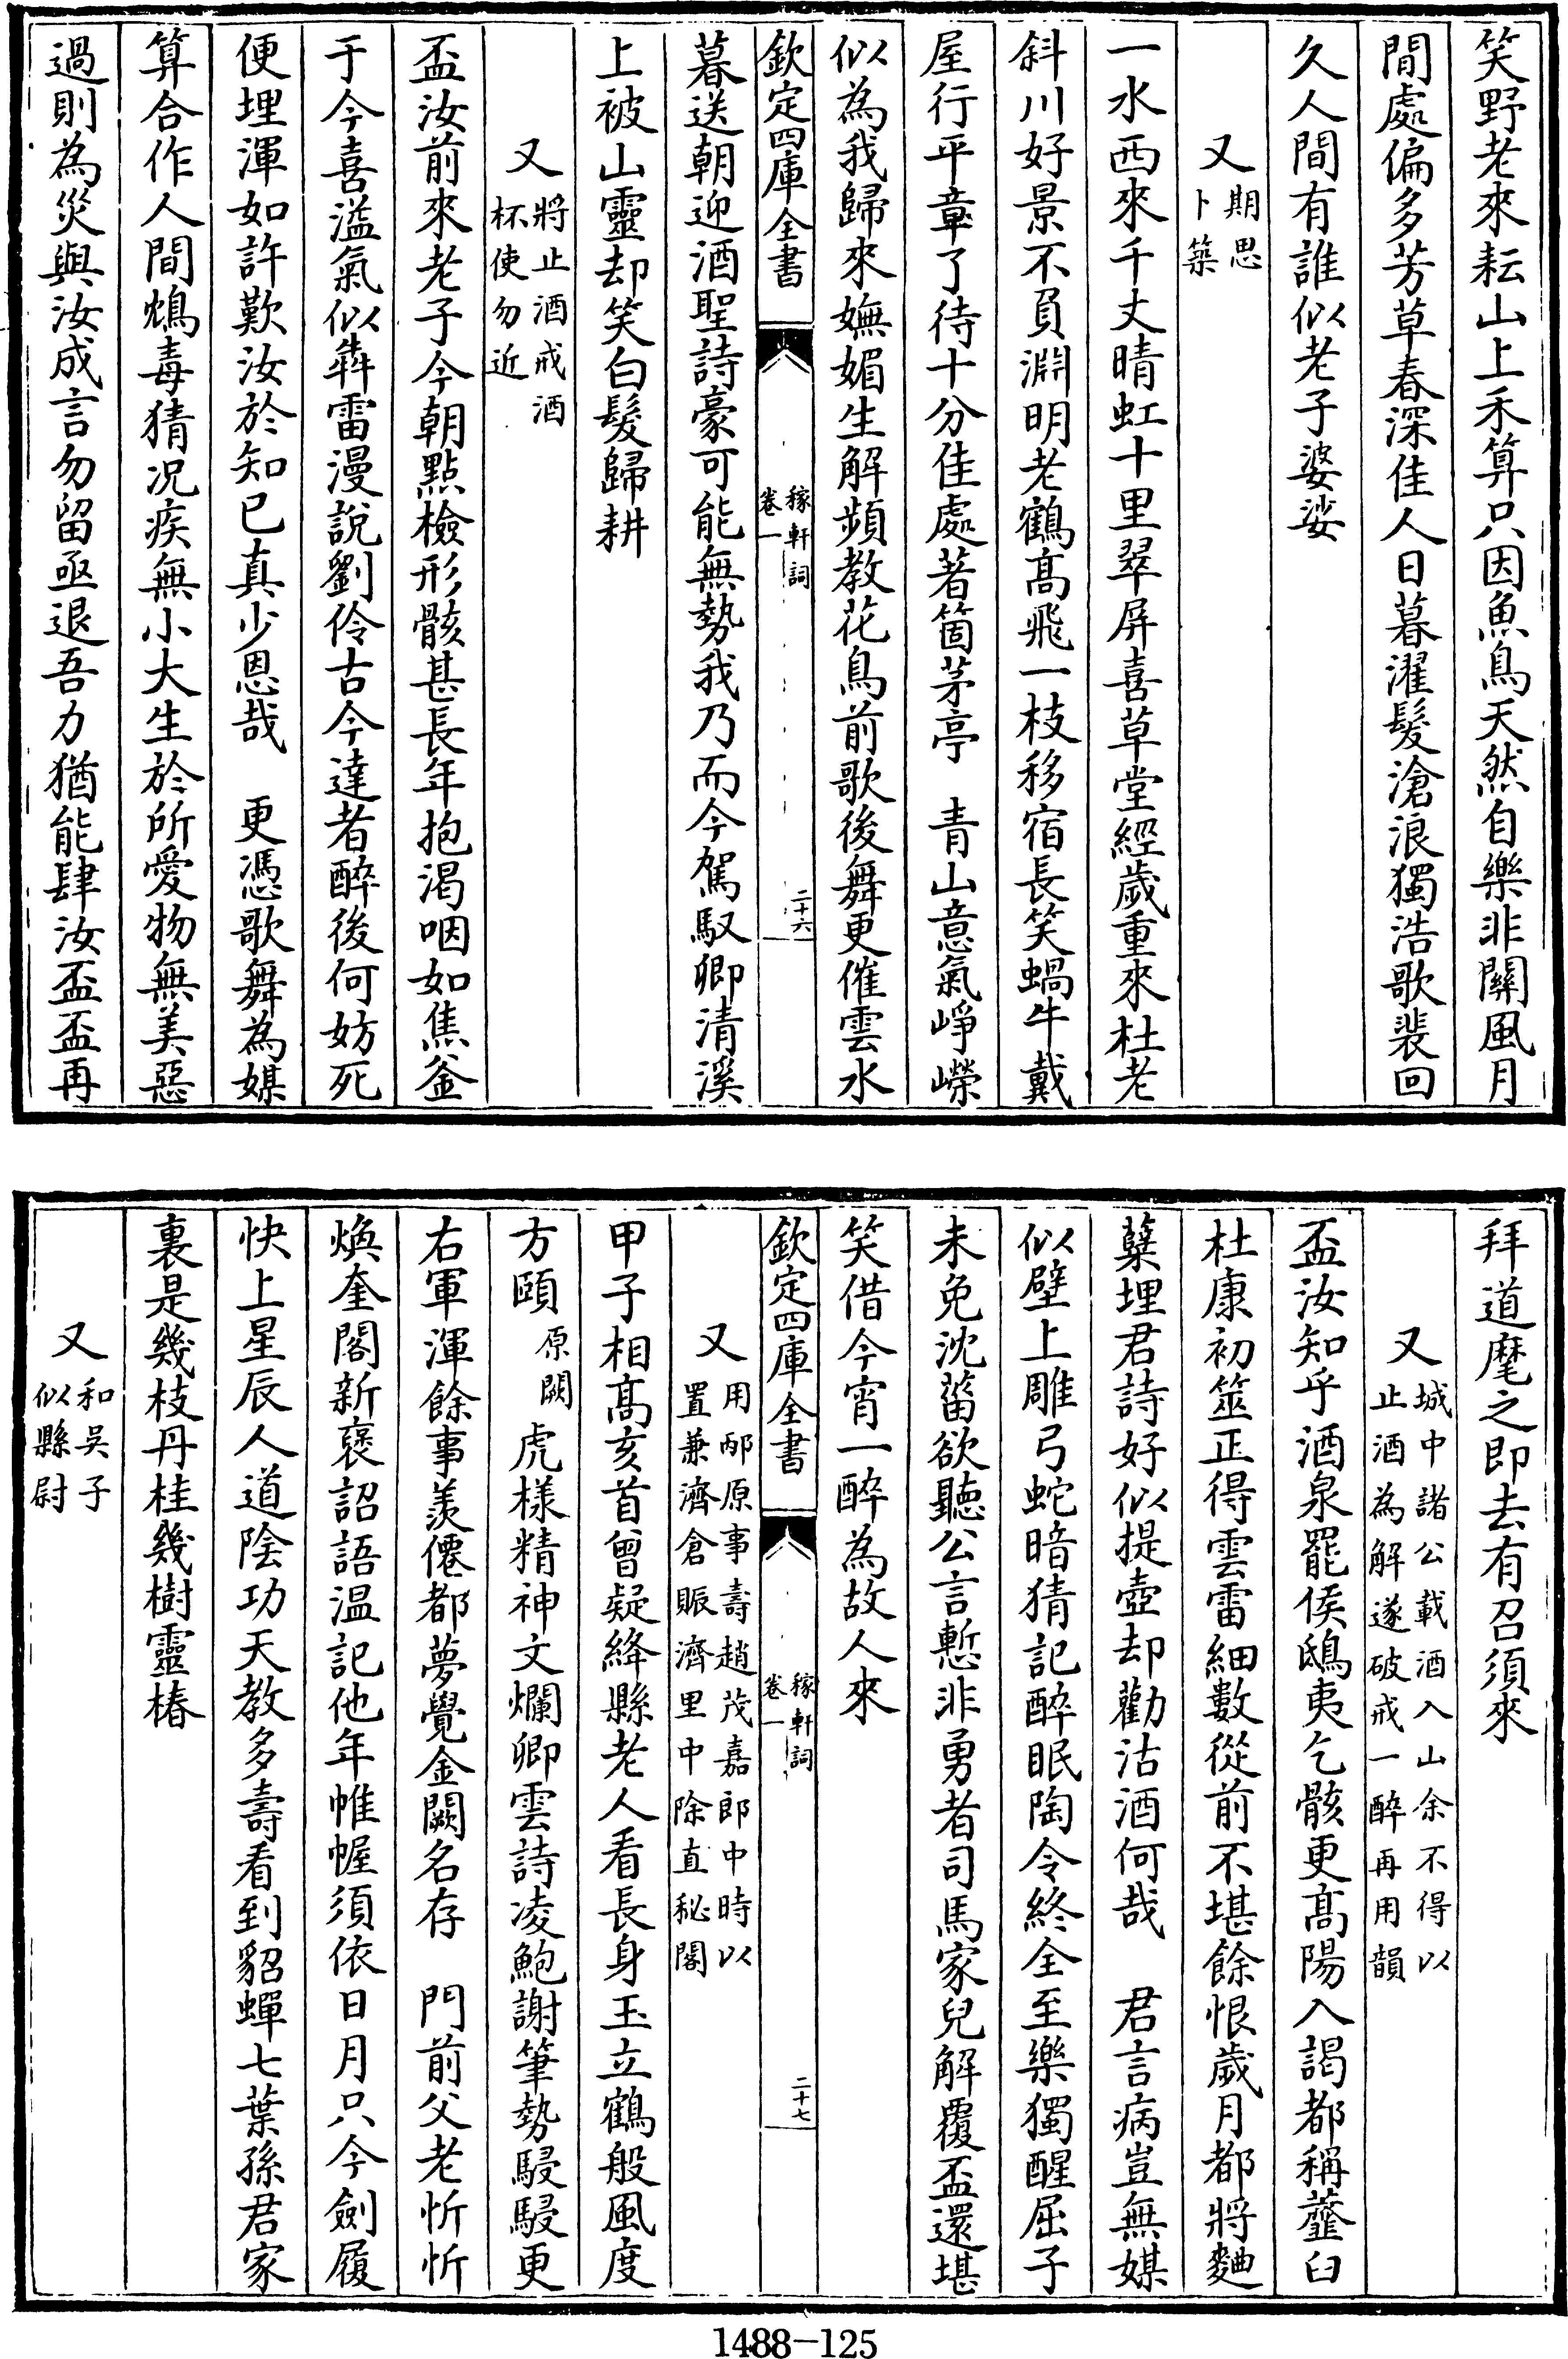 笑野老來耘山上禾算只因魚鳥天然自樂非關風月
閒處偏多芳草春深佳人日暮濯髮滄浪獨浩歌裴回
久人間有誰似老子婆娑
又期思
卜築
一水西來千丈晴虹十里翠屏喜草堂經歲重來杜老
斜川好景不負淵明老鶴髙飛一枝移宿長笑蝸牛戴
屋行平章了待十分佳處著箇茅亭　青山意氣崢嶸
似為我歸來嫵媚生解頻教花鳥前歌後舞更催雲水
欽定四庫全書
稼軒詞
卷一
二十六
暮送朝迎酒聖詩豪可能無勢我乃而今駕馭卿清溪
上被山靈却笑白髮歸耕
又將止酒戒酒
杯使勿近
盃汝前來老子今朝點檢形骸甚長年抱渴咽如焦釜
于今喜溢氣似犇雷漫說劉伶古今達者醉後何妨死
便埋渾如許歎汝於知已真少恩哉　更憑歌舞為媒
算合作人間鴆毒猜况疾無小大生於所愛物無美惡
過則為災與汝成言勿留亟退吾力猶能肆汝盃盃再
拜道麾之即去有召須來
又城中諸公載酒入山余不得以
止酒為解遂破戒一醉再用韻
盃汝知乎酒泉罷侯鴟夷乞骸更髙陽入謁都稱虀臼
杜康初筮正得雲雷細數從前不堪餘恨歲月都將麯
蘖埋君詩好似提壺却勸沽酒何哉　君言病豈無媒
似壁上雕弓蛇暗猜記醉眠陶令終全至樂獨醒屈子
未免沈菑欲聽公言慙非勇者司馬家兒解覆盃還堪
笑借今宵一醉為故人來
欽定四庫全書
稼軒詞
卷一
二十七
又用邴原事壽趙茂嘉郎中時以
置兼濟倉賑濟里中除直秘閣
甲子相髙亥首曾疑絳縣老人看長身玉立鶴般風度
方頤原闕虎樣精神文爛卿雲詩凌鮑謝筆勢駸駸更
右軍渾餘事羨僊都夢覺金闕名存　門前父老忻忻
煥奎閣新褒詔語温記他年帷幄須依日月只今劍履
快上星辰人道陰功天教多壽看到貂蟬七葉孫君家
裏是幾枝丹桂幾樹靈椿
又和吳子
似縣尉
1488-125